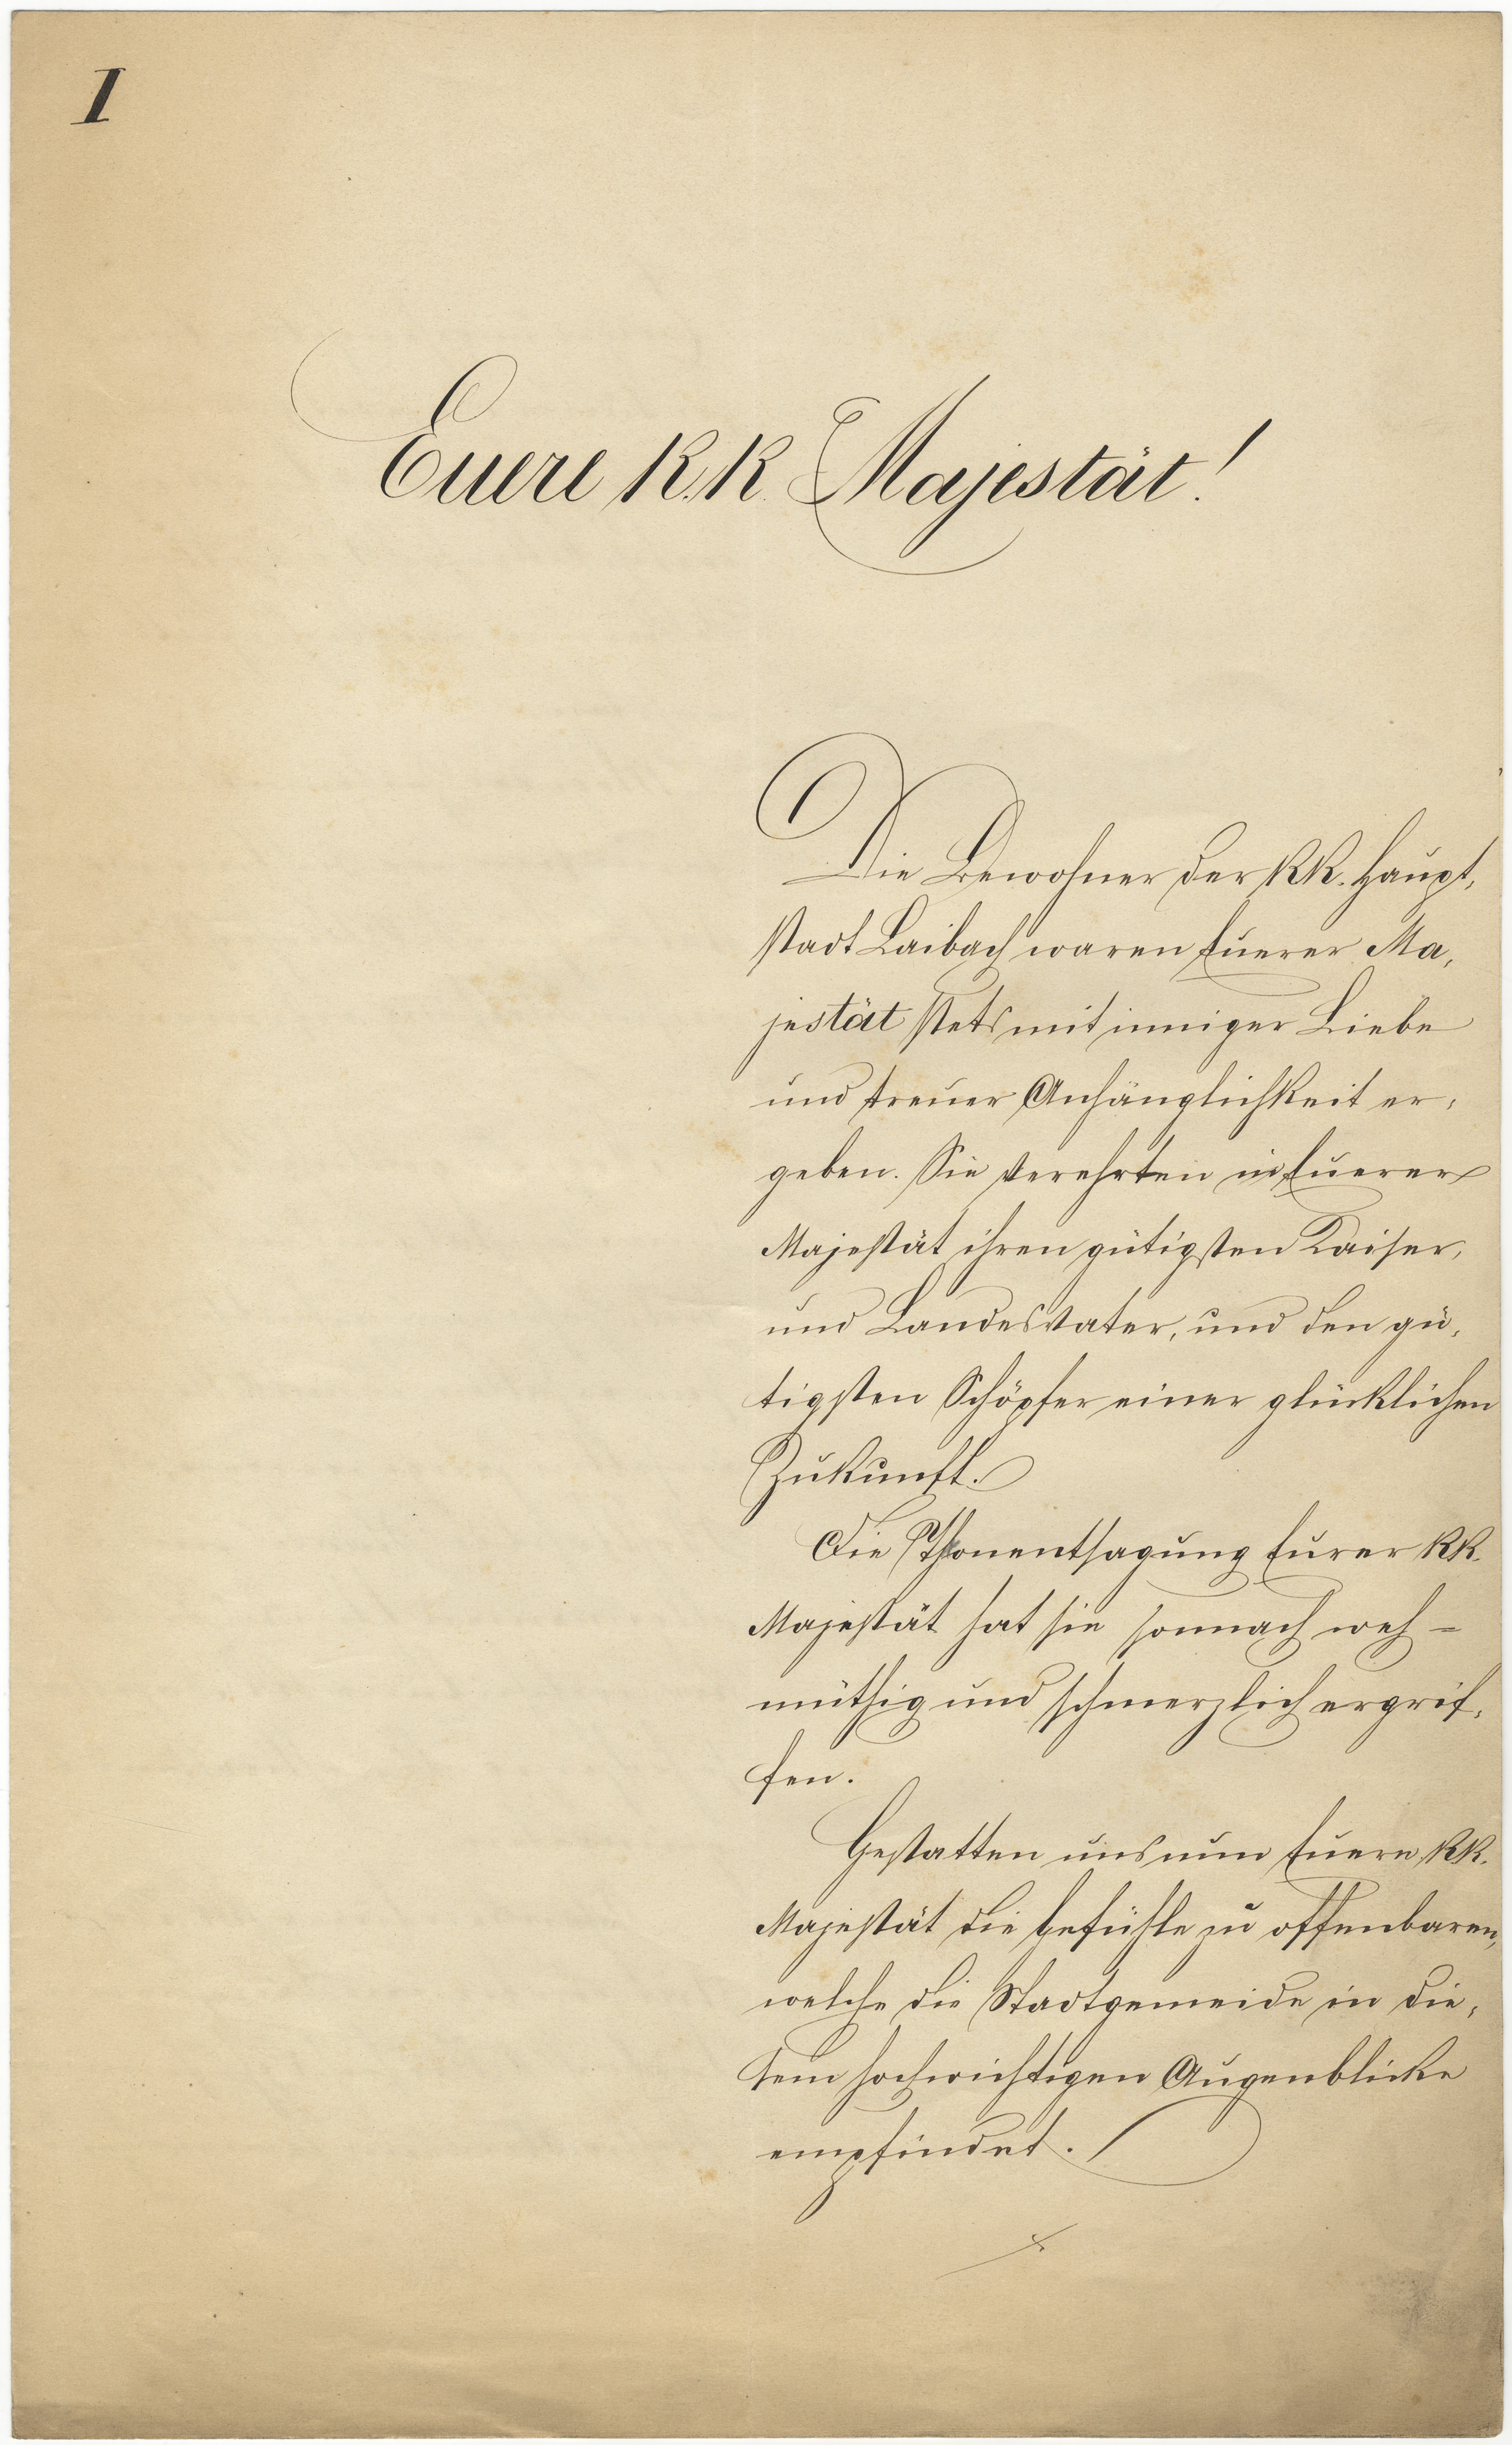 I
Euere K.K. Majestät!
Die Bewohner der KK. Haupt,
stadt Laibach waren Euerer Ma,
jestät stets mit inniger Liebe
und treuer Anhänglichkeit er,
geben. Sie verehrten in Euerer
Majestät ihren gütigsten Kaiser,
und Landesvater, und den gü,
tigsten Schöpfer einer glücklichen
Zukunft.
Die Thronentsagung Eurer KK.
Majestät hat sie sonnach weh=
müthig und schmerzlich ergrif,
fen.
Gestatten uns nun Euere KK.
Majestät die Gefühle zu offenbaren,
welche die Stadtgemeide in die,
sem hochwichtigen Augenblicke
empfindet.